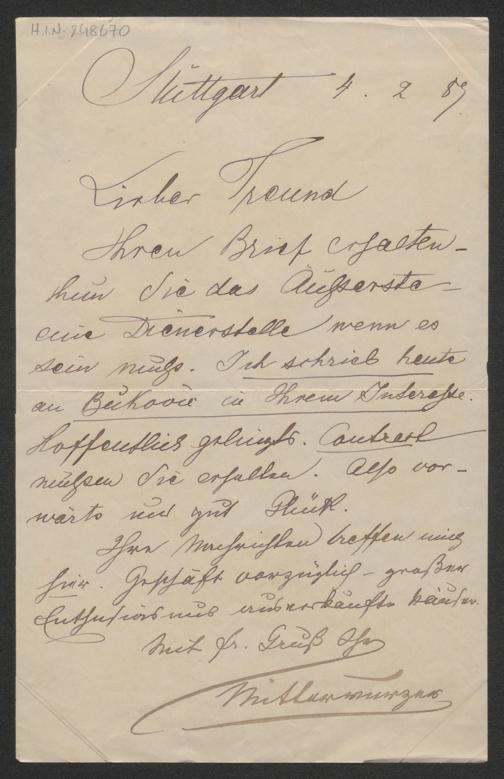 H.I.N. 248670
Stuttgart 4. 2 87
Lieber Freund
Ihren Brief erhalten –
thun Sie das Äußerste –
eine Dienerstelle wenn es
sein muß. Ich schrieb heute
an Bukovic in Ihrem Interesse.
Hoffentlich gelingts. Contract
müßen Sie erhalten. Also vor-
wärts und gut Glück.
Ihre Nachrichten treffen mich
hier. Geschäft vorzüglich – großer
Enthusiasmus ausverkaufte Häuser.
Mit fr. Gruß Ihr
Mitterwurzer